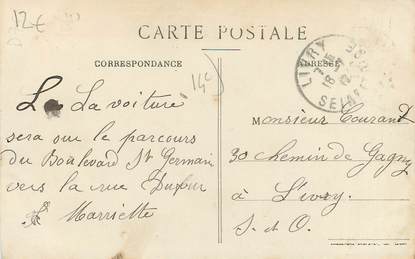 12€
CARTE POSTALE
CORRESPONDANCE
ADRESSE
LIVRY
SEINE
La voiture
sera sur le parcours
du Boulevard St Germain
vers la rue Dufour
Marriette
Monsieur Tourant
30 chemin de Gagny
à Livry
S. et O.